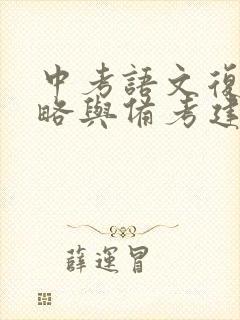 中考語文復
略與備考建
薛運冒